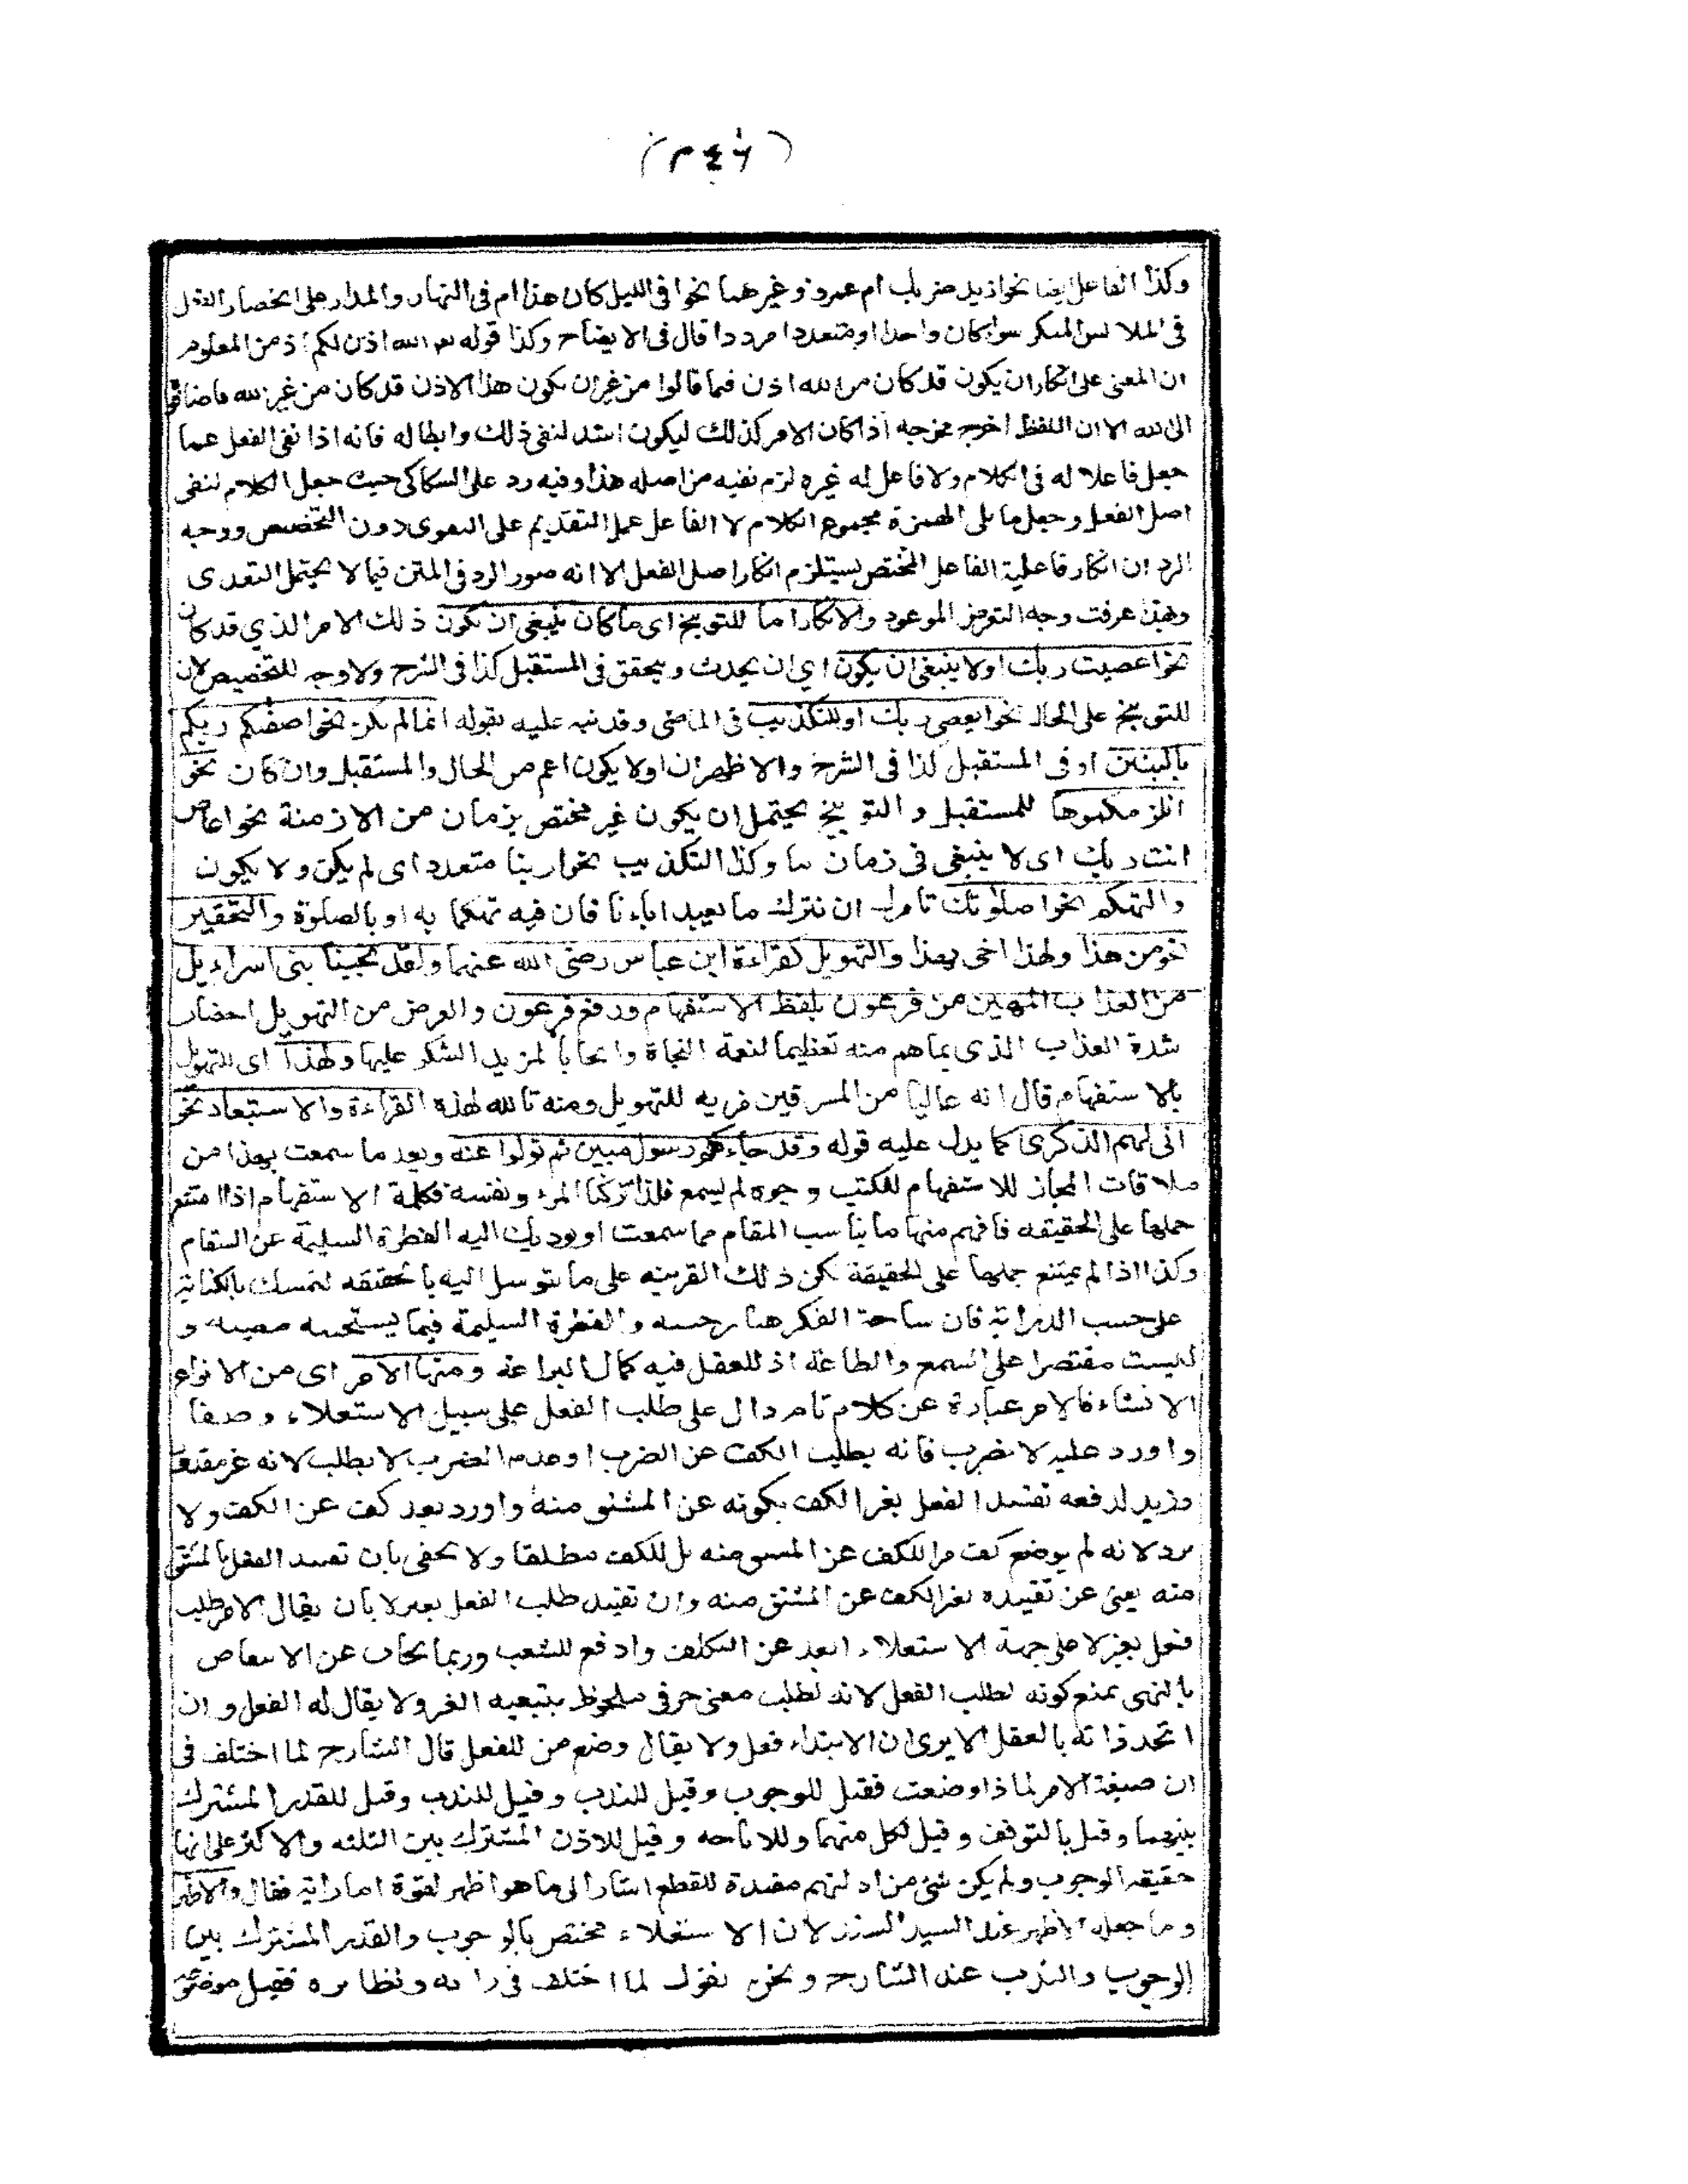 (٢٤٦)
وكذا الفاعل ايضا نحو ازيد ضربك ام عمرو وغيرهما نحو افى الليل كان هذا ام فى النهار والمدار على انحصار الفعل
فى الملابس المنكر سواء كان واحدا او متعددا مرددا قال فى الايضاح وكذا قوله الله اذن لكم اذ من المعلوم
ان المعنى على انكار ان يكون قد كان من الله اذن فيما قالوا من غير ان يكون هذا الاذن قد كان من غير الله فاضافوه
الى الله الا ان اللفظ اخرج مخرجه اذا كان الامر كذلك ليكون اشد لنفى ذلك وابطاله فانه اذا نفى الفعل عما
جعل فاعلا له فى الكلام ولا فاعل له غيره لزم نفيه من اصله هذا وفيه رد على السكاكى حيث جعل الكلام لنفى
اصل الفعل وجعل ما يلى الهمزة مجموع الكلام لا الفاعل عمل التقديم على التقوى دون التخصيص ووجه
الرد ان انكار فاعلية الفاعل المختص يستلزم انكار اصل الفعل الا انه صور الرد فى المتن فيما لا يحتمل التعدى
وبهذا عرفت وجه التعرض الموعود والانكار اما للتوبيخ اى ما كان ينبغى ان يكون ذلك الامر الذي قد كان
نحو اعصيت ربك او لا ينبغى ان يكون اي ان يحدث ويتحقق فى المستقبل كذا فى الشرح ولا وجه للتخصيص لان
للتوبيخ على الحال نحو ايعصى ربك او للتكذيب فى الماضى وقد نبه عليه بقوله اى لم يكن نحو افاصفيكم ربكم
بالبنين او فى المستقبل كذا فى الشرح والاظهر ان او لا يكون اعم من الحال والمستقبل وان كان نحو
انلزمكموها للمستقبل والتوبيخ يحتمل ان يكون غير مختص بزمان من الازمنة نحو اعاص
انت ربك اى لا ينبغى فى زمان ما وكذا التكذيب نحو اربنا متعدد اى لم يكن ولا يكون
والتهكم نحو اصلوتك تامرك ان نترك ما يعبد اباءنا فان فيه تهكما به او بالصلوة والتحقير
نحو من هذا ولهذا اخى بهذا والتهويل كقراءة ابن عباس رضى الله عنهما ولقد نجينا بنى اسراءيل
من العذاب المهين من فرعون بلفظ الاستفهام ورفع فرعون والغرض من التهويل احضار
شدة العذاب الذى نجاهم منه تعظيما لنعمة النجاة وايجابا لمزيد الشكر عليها ولهذا اى للتهويل
بالاستفهام قال انه عاليا من المسرفين فزيه للتهويل ومنه تالله لهذه القراءة والاستبعاد نحو
انى لهم الذكرى كما يدل عليه قوله وقد جاءهم رسول مبين ثم تولوا عنه وبعد ما سمعت بهذا من
علاقات المجاز للاستفهام للكتب وجوه لم يسمع فلذا تركنا المرء ونفسه فكلمة الاستفهام اذا امتنع
حملها على الحقيقه فافهم منها ما يناسب المقام مما سمعت او يوديك اليه الفطرة السليمة عن السقام
وكذا اذا لم يمتنع حملها على الحقيقة لكن ذلك القرينه على ما يتوسل اليه بالحقيقه لتمسك بالكناية
على حسب الدراية فان ساحة الفكر هنا رحبه والفطرة السليمة فيما يستحسنه مصيبه و
ليست مقتصرا على السمع والطاعة اذ للعقل فيه كمال البراعة ومنها الامر اى من الانواع
الانشاء فالامر عبارة عن كلام تام دال على طلب الفعل على سبيل الاستعلاء وضعا
واورد عليه لا تضرب فانه يطلب الكف عن الضرب او عدم الضرب لا يطلب لانه غير مقدور
وزيد لدفعه تقييد الفعل بغير الكف بكونه عن المشتق منه واورد بعد كف عن الكف ولا
يرد لانه لم يوضع كف مرا للكف عن المشتق منه بل للكف مطلقا ولا يخفى بان تقييد الفعل بالمشتق
منه يغنى عن تقييده بغير الكف عن المشتق منه وان تقييد طلب الفعل بغير لا بان يقال الامر طلب
فعل بغير لا على جهة الاستعلاء ابعد عن التكلف وادفع للشغب وربما يجاب عن الانتقاض
بالنهى بمنع كونه لطلب الفعل لانه لطلب معنى حرفى ملحوظ بتبعيه الغير ولا يقال له الفعل وان
اتحد ذاته بالعقل الا يرى ان الابتداء فعل ولا يقال وضع من للفعل قال الشارح لما اختلف فى
ان صيغة الامر لماذا وضعت فقيل للوجوب وقيل للندب وقيل للندب وقيل للقدر المشترك
بينهما وقيل بالتوقف وقيل لكل منهما وللاباحه وقيل للاذن المشترك بين الثلثه والاكثر على انها
حقيقه الوجوب ولم يكن شئ من ادلتهم مفيدة للقطع اشار الى ما هو اظهر لقوة اماراته فقال والاظهر
وما جعله الاظهر عند السيد السند لان الاستعلاء مختص بالوجوب والقدر المشترك بين
الوجوب والندب عند الشارح ونحن نقول لما اختلف فى ونظايره فقيل موضوع